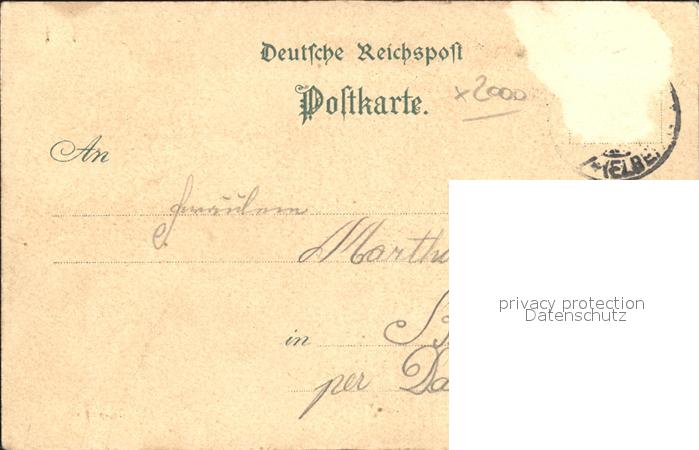 Deutsche Reichspost
Postkarte.
x2000
(ELBE)
An
Fräulein
Marth
in
per Da
privacy protection
Datenschutz